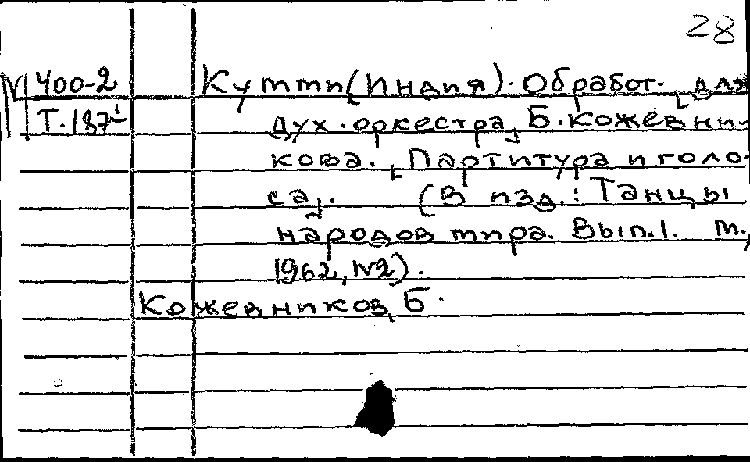 28
М 400-2
Т.187¹
Кумми (Индия). Обработ. [для
дух. оркестра] Б. Кожевни-
кова. [Партитура и голо-
са]. (В изд.: Танцы
народов мира. Вып.1. М.,
1962, №2).
Кожевников, Б.